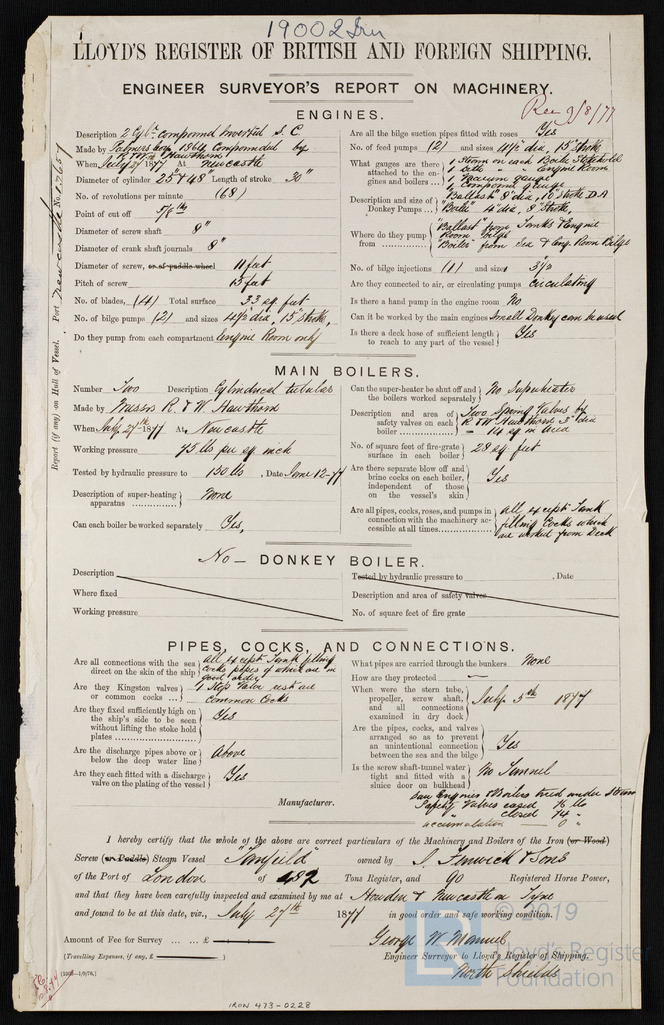 19002 Iron
LLOYD'S REGISTER OF BRITISH AND FOREIGN SHIPPING.
ENGINEER SURVEYOR'S REPORT ON MACHINERY.
Rec 9/8/77
Port Newcastle No. 12657
Report (if any) on Hull of Vessel.
ENGINES.
Description 2 Cylr compound Inverted S.C
Made by Palmers Coy 1864 Compounded by
R & W Hawthorn
When July 27 1877 At Newcastle
Diameter of cylinder 25" & 48" Length of stroke 30"
No. of revolutions per minute (68)
Point of cut off 5/8ths
Diameter of screw shaft 8"
Diameter of crank shaft journals 8"
Diameter of screw, or of paddle wheel 11 feet
Pitch of screw 15 feet
No. of blades, (4) Total surface 33 sq. feet
No. of bilge pumps (2) and sizes 4½" dia, 15" stroke,
Do they pump from each compartment Engine Room only
Are all the bilge suction pipes fitted with roses Yes
No. of feed pumps (2) and sizes 4½" dia, 15" stroke
What gauges are there attached to the engines and boilers ... 1 Steam on each Boiler Stokehold
1 Salt " " Engine Room
1 Vacuum gauge
1 Compound gauge
Description and size of Donkey Pumps ... "Ballast" 8" dia, 10" stroke D.A
"Boiler" 4" dia, 8" stroke,
Where do they pump from ............ "Ballast" from Tanks & Engine
Room bilge
"Boiler" from Sea & Eng. Room Bilges
No. of bilge injections (1) and sizes 3½
Are they connected to air, or circulating pumps circulating
Is there a hand pump in the engine room No
Can it be worked by the main engines Small Donkey can be used
Is there a deck hose of sufficient length to reach to any part of the vessel Yes
MAIN BOILERS.
Number Two Description Cylindrical tubular
Made by Messrs R. & W. Hawthorn
When July 27th 1877 At Newcastle
Working pressure 75 lbs per sq inch
Tested by hydraulic pressure to 150 lbs, Date June 12-77
Description of super-heating apparatus ............... None
Can each boiler be worked separately Yes,
Can the super-heater be shut off and the boilers worked separately No Superheater
Description and area of safety valves on each boiler ............... Two Spring Valves by
R & W Hawthorn 3" dia
= 14 sq in area
No. of square feet of fire-grate surface in each boiler 28 sq feet
Are there separate blow off and brine cocks on each boiler, independent of those on the vessel's skin Yes
Are all pipes, cocks, roses, and pumps in connection with the machinery accessible at all times............ all, except Tank
filling Cocks which
are worked from Deck
No – DONKEY BOILER.
Description
Where fixed
Working pressure
Tested by hydraulic pressure to , Date
Description and area of safety valves
No. of square feet of fire grate
PIPES, COCKS, AND CONNECTIONS.
Are all connections with the sea direct on the skin of the ship all except Tank filling
Cocks pipes of which are in
good order
Are they Kingston valves or common cocks ... 1 Stop Valve rest are
common Cocks
Are they fixed sufficiently high on the ship's side to be seen without lifting the stoke hold plates .................. Yes
Are the discharge pipes above or below the deep water line Above
Are they each fitted with a discharge valve on the plating of the vessel Yes
What pipes are carried through the bunkers None
How are they protected –
When were the stern tube, propeller, screw shaft, and all connections examined in dry dock July 5th 1877
Are the pipes, cocks, and valves arranged so as to prevent an unintentional connection between the sea and the bilge Yes
Is the screw shaft-tunnel water tight and fitted with a sluice door on bulkhead No Tunnel
Saw Engines & Boilers tried under Steam
Safety Valves eased 76 lbs
" " closed 74 "
accumulation 0 "
Manufacturer.
I hereby certify that the whole of the above are correct particulars of the Machinery and Boilers of the Iron (or Wood)
Screw (or Paddle) Steam Vessel "Tanfield" owned by J. Fenwick & Sons
of the Port of London of 487 Tons Register, and 90 Registered Horse Power,
and that they have been carefully inspected and examined by me at Howdon & Newcastle on Tyne
and found to be at this date, viz., July 27th 1877 in good order and safe working condition.
Amount of Fee for Survey ... ... £
(Travelling Expenses, if any, £ )
George W. Manuel
Engineer Surveyor to Lloyd's Register of Shipping.
North Shields
IRON 473-0228
© 2019
Lloyd's Register
Foundation